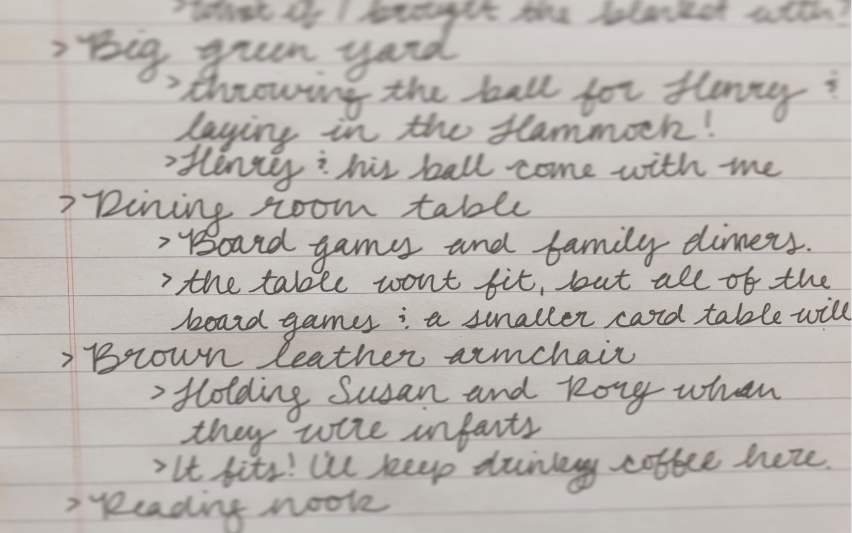 >What if I brought the blanket with?
>Big green yard
>throwing the ball for Henry &
laying in the Hammock!
>Henry & his ball come with me
>Dining room table
>Board games and family dinners.
>the table wont fit, but all of the
board games & a smaller card table will
>Brown leather armchair
>Holding Susan and Rory when
they were infants
>It fits! I'll keep drinking coffee here.
>Reading nook